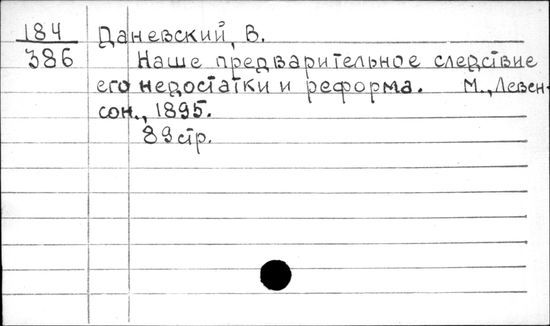 184 Даневский, В.
386 Наше предварительное следствие
его недостатки и реформа. М., Левен-
сон., 1895.
89 стр.